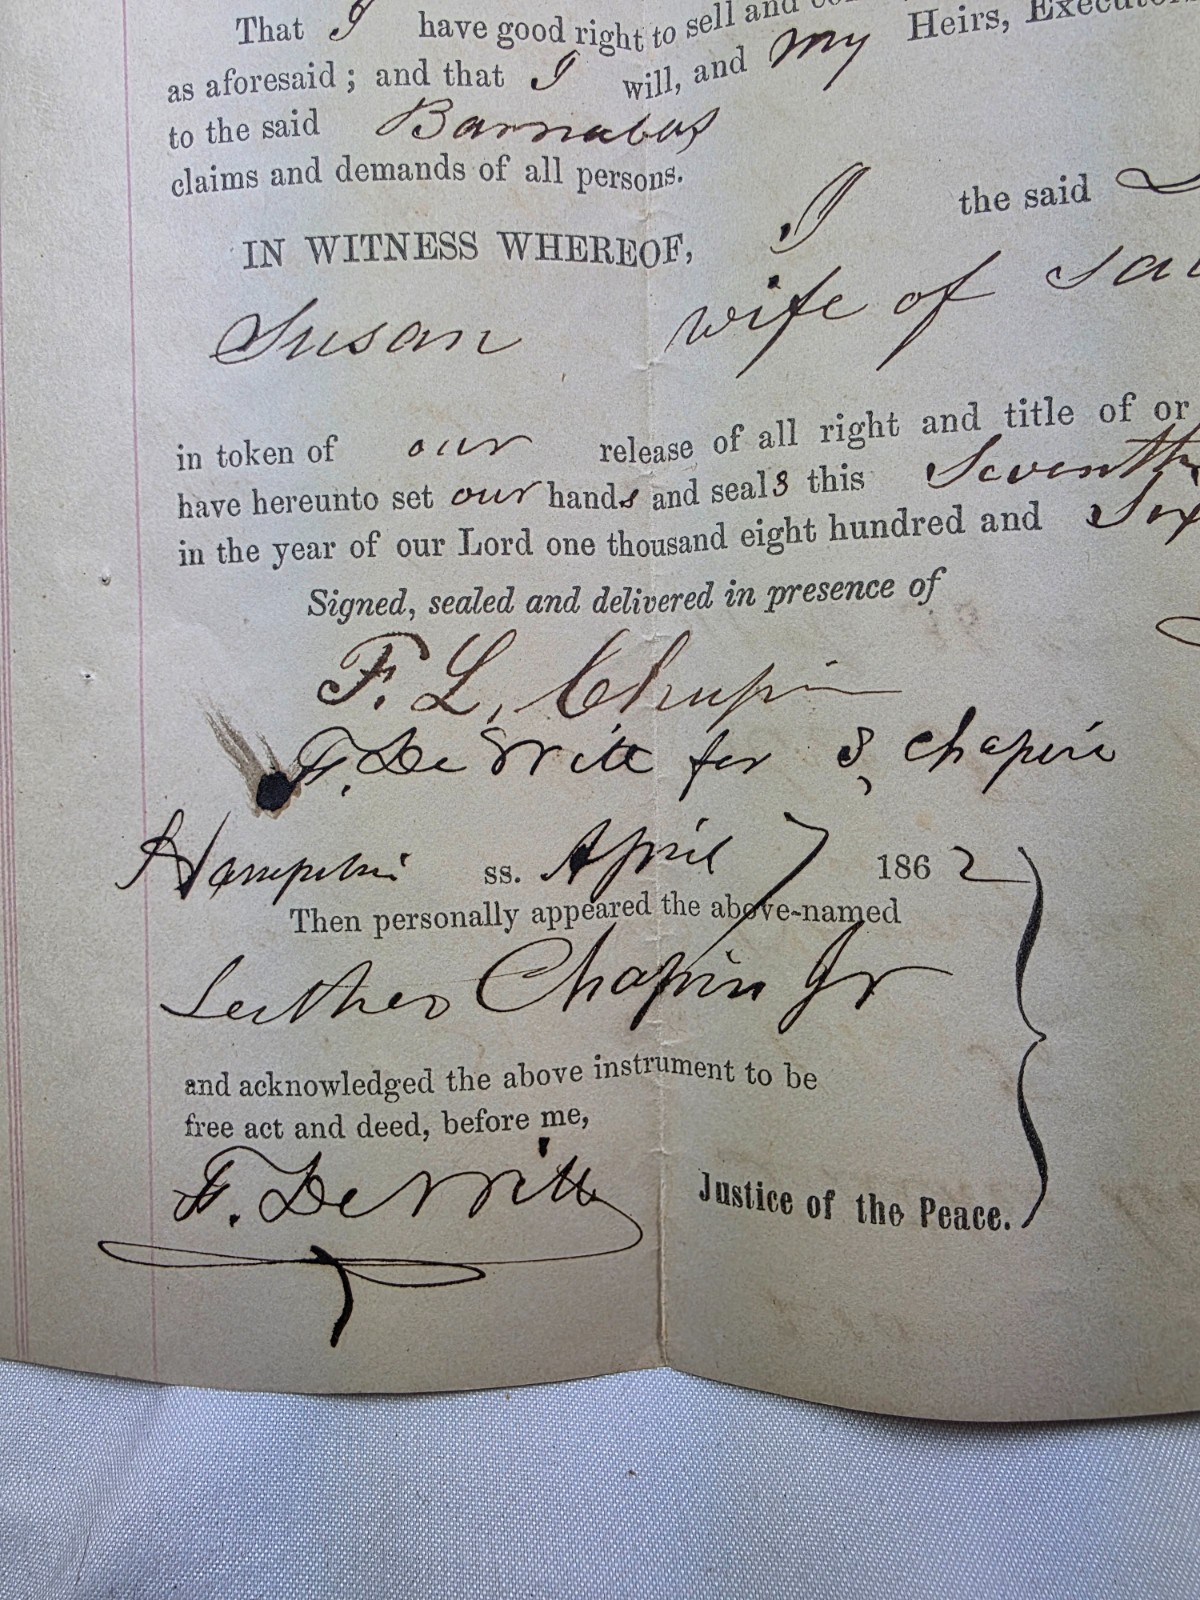 That I have good right to sell and
as aforesaid ; and that I will, and my Heirs, Executors
to the said Barnabas
claims and demands of all persons.
IN WITNESS WHEREOF, I the said
Susan wife of
in token of our release of all right and title of or
have hereunto set our hands and seals this Seventh
in the year of our Lord one thousand eight hundred and Six
Signed, sealed and delivered in presence of
F. L. Chapin
F. De Witt for S, Chapin
Hampshire ss. April 7 1862
Then personally appeared the above-named
Luther Chapin Jr
and acknowledged the above instrument to be
free act and deed, before me,
F. De Witt Justice of the Peace.